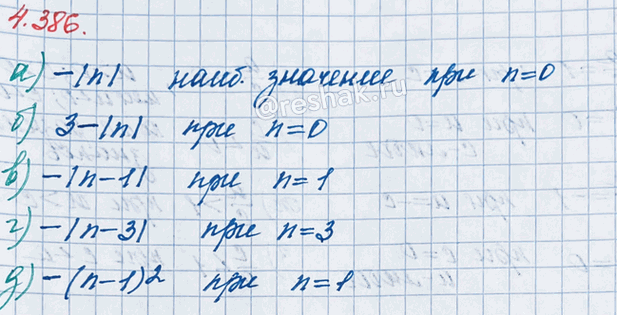 4.386.
а) -|n| наиб. значение при n=0
@reshak.ru
б) 3-|n| при n=0
в) -|n-1| при n=1
г) -|n-3| при n=3
д) -(n-1)² при n=1